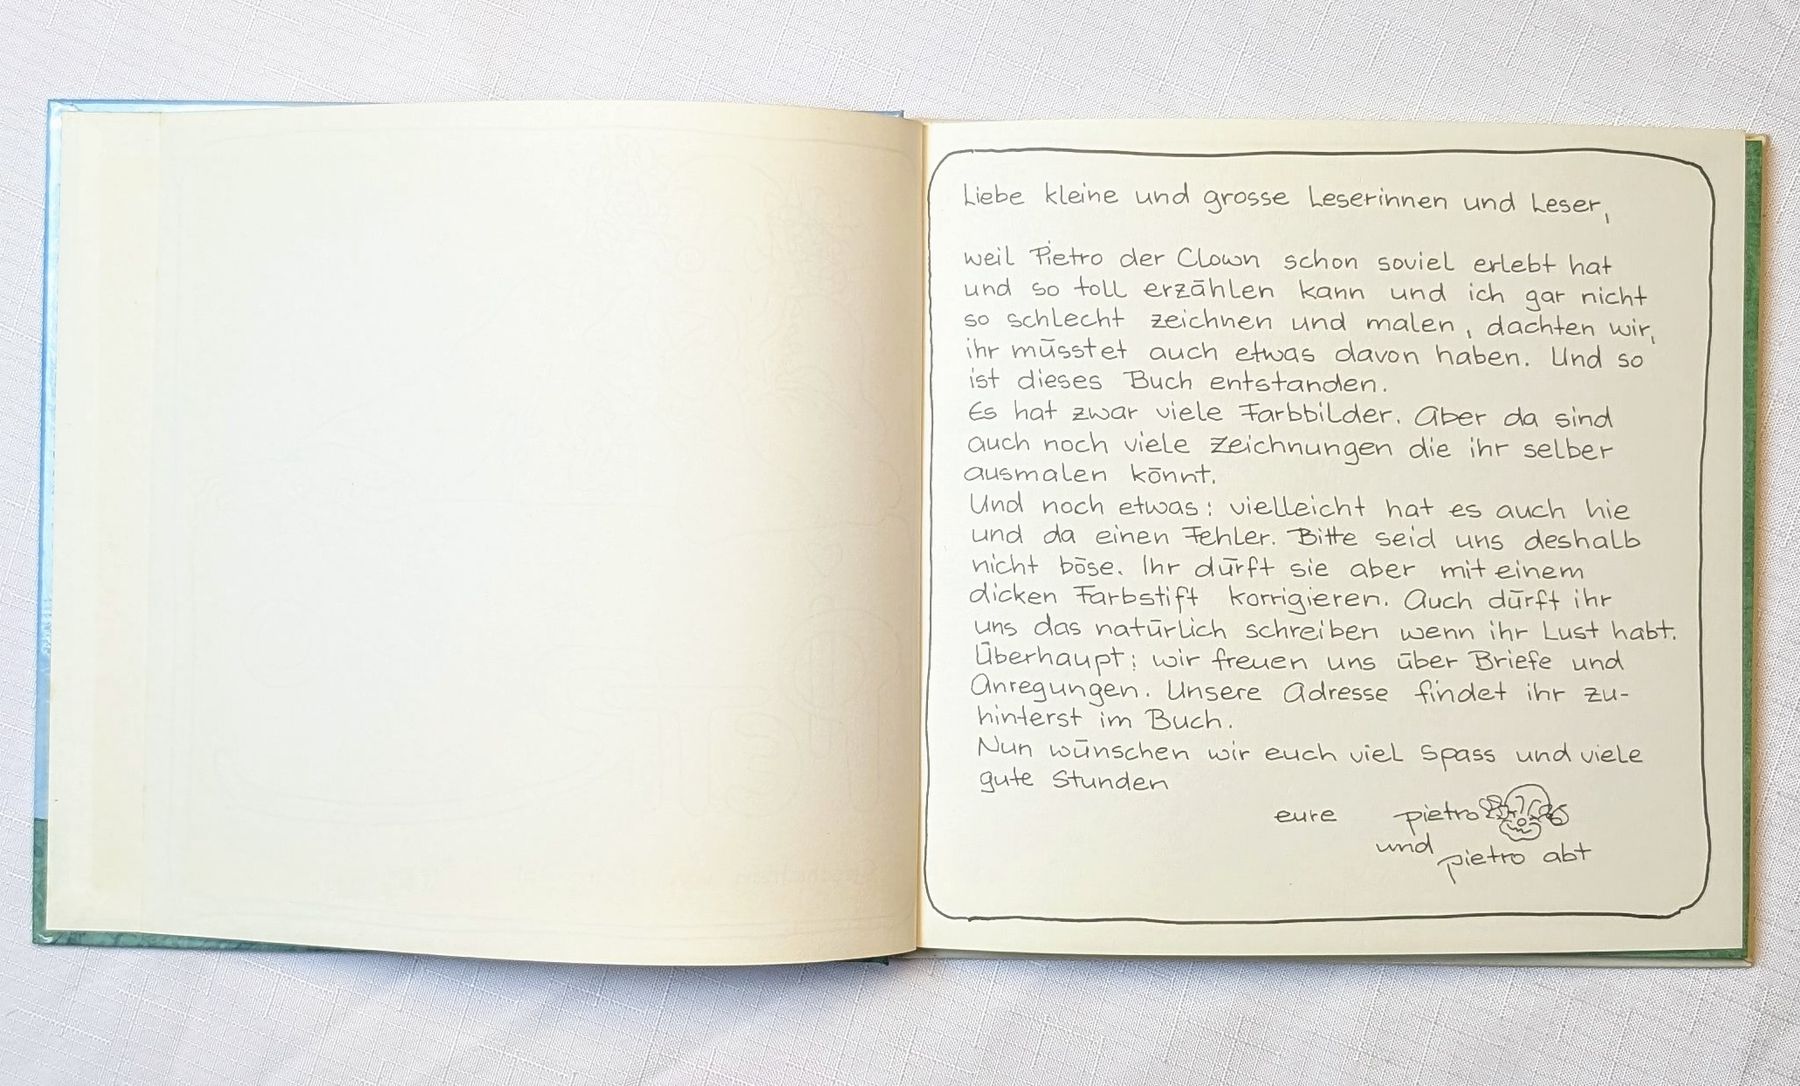 Liebe kleine und grosse Leserinnen und Leser,
weil Pietro der Clown schon soviel erlebt hat
und so toll erzählen kann und ich gar nicht
so schlecht zeichnen und malen, dachten wir,
ihr müsstet auch etwas davon haben. Und so
ist dieses Buch entstanden.
Es hat zwar viele Farbbilder. Aber da sind
auch noch viele Zeichnungen die ihr selber
ausmalen könnt.
Und noch etwas: vielleicht hat es auch hie
und da einen Fehler. Bitte seid uns deshalb
nicht böse. Ihr dürft sie aber mit einem
dicken Farbstift korrigieren. Auch dürft ihr
uns das natürlich schreiben wenn ihr Lust habt.
Überhaupt: wir freuen uns über Briefe und
Anregungen. Unsere Adresse findet ihr zu-
hinterst im Buch.
Nun wünschen wir euch viel Spass und viele
gute Stunden
eure pietro
und
pietro abt